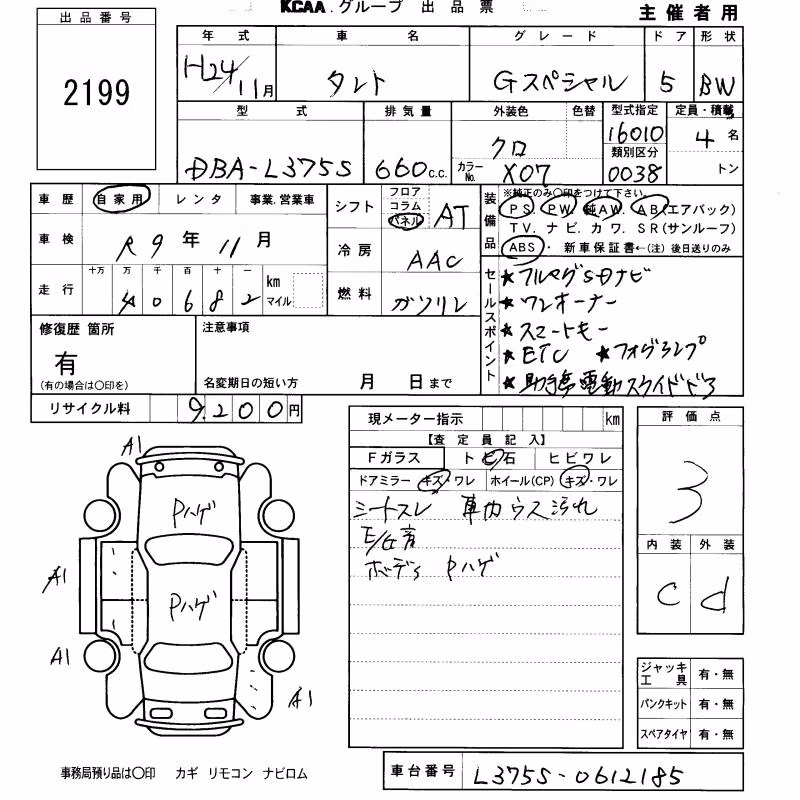 KCAA.グループ 出品票
主催者用
出品番号
2199
年式 車名 グレード ドア 形状
H24/11月 タント Gスペシャル 5 BW
型式 排気量 外装色 色替 型式指定 定員・積載
DBA-L375S 660c.c. クロ カラーNo. X07 16010 類別区分 0038 4名 トン
車歴 自家用 レンタ 事業.営業車
車検 R9年11月
走行 十万 万 千 百 十 一
40682 km マイル
シフト フロア コラム パネル AT
冷房 AAC
燃料 ガソリン
装備品 ※純正のみ○印をつけて下さい。
PS. PW. 純AW. AB(エアバック)
TV. ナビ. カワ. SR(サンルーフ)
ABS・ 新車保証書←(注) 後日送りのみ
セールスポイント
★フルセグSDナビ
★ワンオーナー
★スマートキー
★ETC ★フォグランプ
★助手席電動スライドドア
修復歴 箇所
有
(有の場合は○印を)
注意事項
名変期日の短い方 月 日まで
リサイクル料 9.200円
現メーター指示 km
【査定員記入】
Fガラス トビ石 ヒビワレ
ドアミラー キズ・ワレ ホイール(CP) キズ・ワレ
シートスレ 車内ウス汚れ
E/G音
ボディ Pハゲ
評価点
3
内装 外装
C d
A1
Pハゲ
A1 Pハゲ
A1
A1
ジャッキ 工具 有・無
パンクキット 有・無
スペアタイヤ 有・無
事務局預り品は○印 カギ リモコン ナビロム
車台番号 L375S-0612185